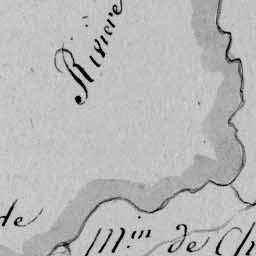 Rivière
de
M.in de Ch